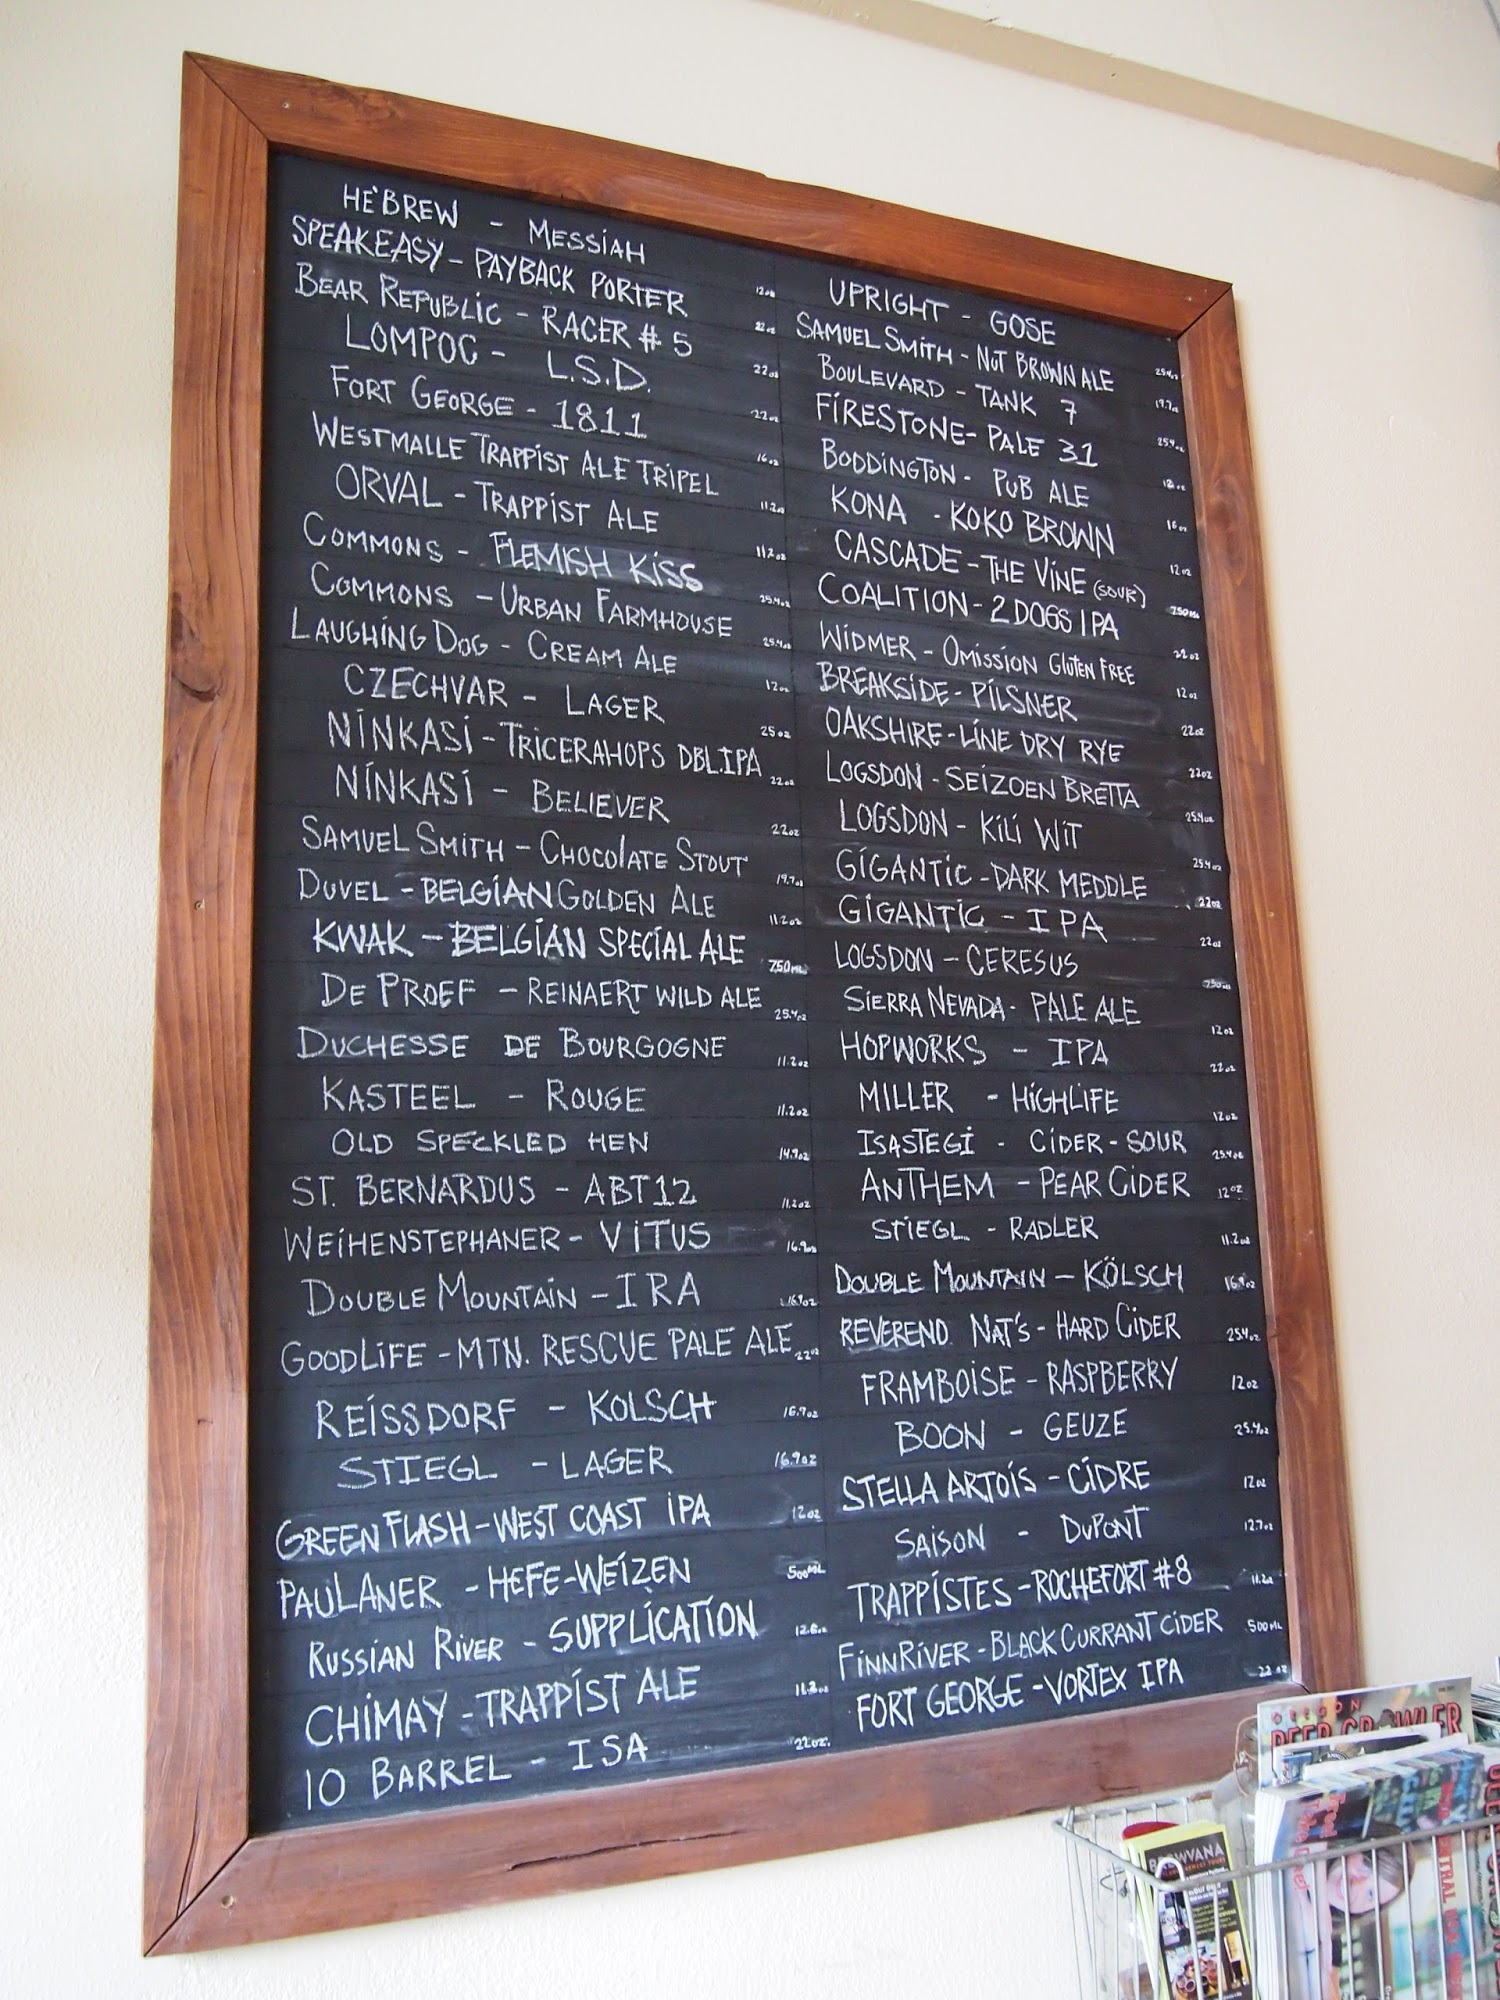 HE'BREW - MESSIAH 12oz
SPEAKEASY - PAYBACK PORTER 22oz
BEAR REPUBLIC - RACER # 5 22oz
LOMPOC - L.S.D. 22oz
FORT GEORGE - 1811 16oz
WESTMALLE TRAPPIST ALE TRIPEL 11.2oz
ORVAL - TRAPPIST ALE 11.2oz
COMMONS - FLEMISH KISS 25.4oz
COMMONS - URBAN FARMHOUSE 25.4oz
LAUGHING DOG - CREAM ALE 12oz
CZECHVAR - LAGER 25oz
NINKASI - TRICERAHOPS DBL.IPA 22oz
NINKASI - BELIEVER 22oz
SAMUEL SMITH - CHOCOLATE STOUT 19.7oz
DUVEL - BELGIAN GOLDEN ALE 11.2oz
KWAK - BELGIAN SPECIAL ALE 750ML
DE PROEF - REINAERT WILD ALE 25.4oz
DUCHESSE DE BOURGOGNE 11.2oz
KASTEEL - ROUGE 11.2oz
OLD SPECKLED HEN 14.9oz
ST. BERNARDUS - ABT 12 11.2oz
WEIHENSTEPHANER - VITUS 16.9oz
DOUBLE MOUNTAIN - IRA 16.9oz
GOODLIFE - MTN. RESCUE PALE ALE 22oz
REISSDORF - KOLSCH 16.9oz
STIEGL - LAGER 16.9oz
GREEN FLASH - WEST COAST IPA 12oz
PAULANER - HEFE-WEIZEN 500ML
RUSSIAN RIVER - SUPPLICATION
CHIMAY - TRAPPIST ALE 11.2oz
10 BARREL - ISA 22oz.
UPRIGHT - GOSE 25.4oz
SAMUEL SMITH - NUT BROWN ALE 19.7oz
BOULEVARD - TANK 7 25.4oz
FIRESTONE - PALE 31 12oz
BODDINGTON - PUB ALE 16oz
KONA - KOKO BROWN 12oz
CASCADE - THE VINE (SOUR) 750ML
COALITION - 2 DOGS IPA 22oz
WIDMER - OMISSION GLUTEN FREE 12oz
BREAKSIDE - PILSNER 22oz
OAKSHIRE - LINE DRY RYE 22oz
LOGSDON - SEIZOEN BRETTA 25.4oz
LOGSDON - KILI WIT 25.4oz
GIGANTIC - DARK MEDDLE 22oz
GIGANTIC - IPA 22oz
LOGSDON - CERESUS 750ML
SIERRA NEVADA - PALE ALE 12oz
HOPWORKS - IPA 22oz
MILLER - HIGHLIFE 12oz
ISASTEGI - CIDER - SOUR 25.4oz
ANTHEM - PEAR CIDER 12oz
STIEGL - RADLER 11.2oz
DOUBLE MOUNTAIN - KÖLSCH 16.9oz
REVEREND NAT'S - HARD CIDER 25.4oz
FRAMBOISE - RASPBERRY 12oz
BOON - GEUZE 25.4oz
STELLA ARTOIS - CIDRE 12oz
SAISON - DUPONT 12.7oz
TRAPPISTES - ROCHEFORT #8 11.2oz
FINNRIVER - BLACK CURRANT CIDER 500ML
FORT GEORGE - VORTEX IPA 22 oz
OREGON
BEER GROWLER
BREWVANA